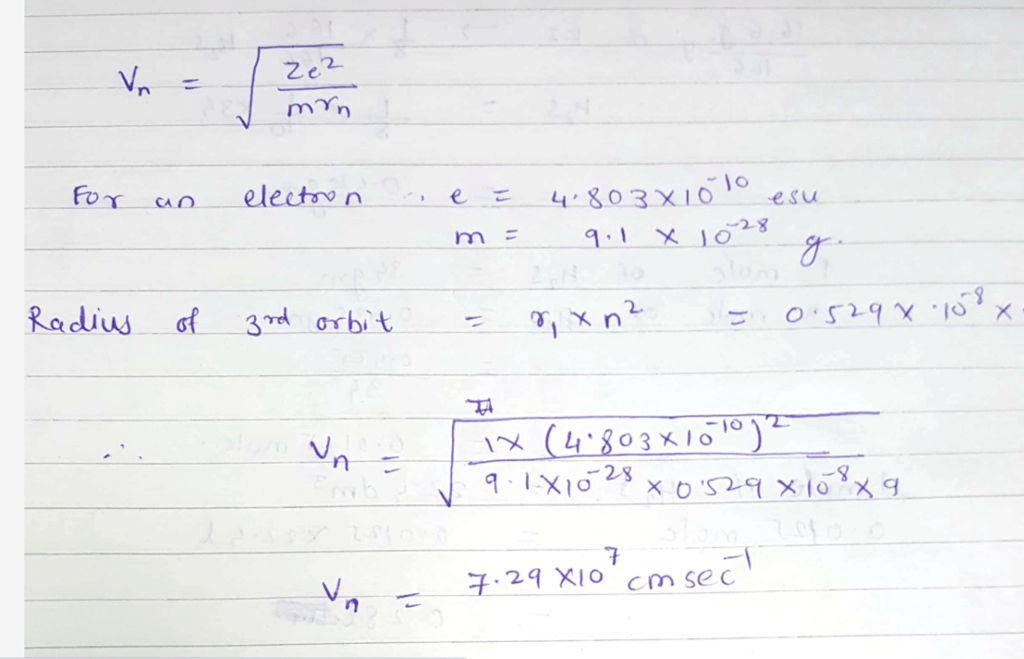 Vn = √(Ze²/mrn)
For an electron, e = 4.803 × 10⁻¹⁰ esu
m = 9.1 × 10⁻²⁸ g.
Radius of 3rd orbit = r₁ × n² = 0.529 × 10⁻⁸ ×
∴ Vn = √(1 × (4.803 × 10⁻¹⁰)² / 9.1 × 10⁻²⁸ × 0.529 × 10⁻⁸ × 9)
Vn = 7.29 × 10⁷ cm sec⁻¹